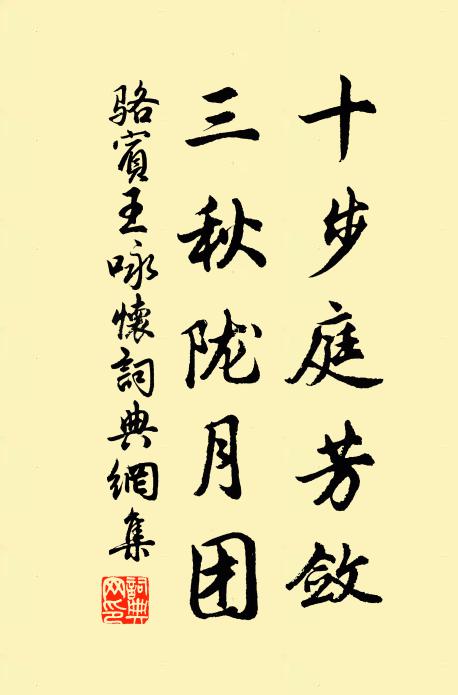 十步庭芳敛
三秋陇月团
骆賓王咏懷詞典網集
詞典网印